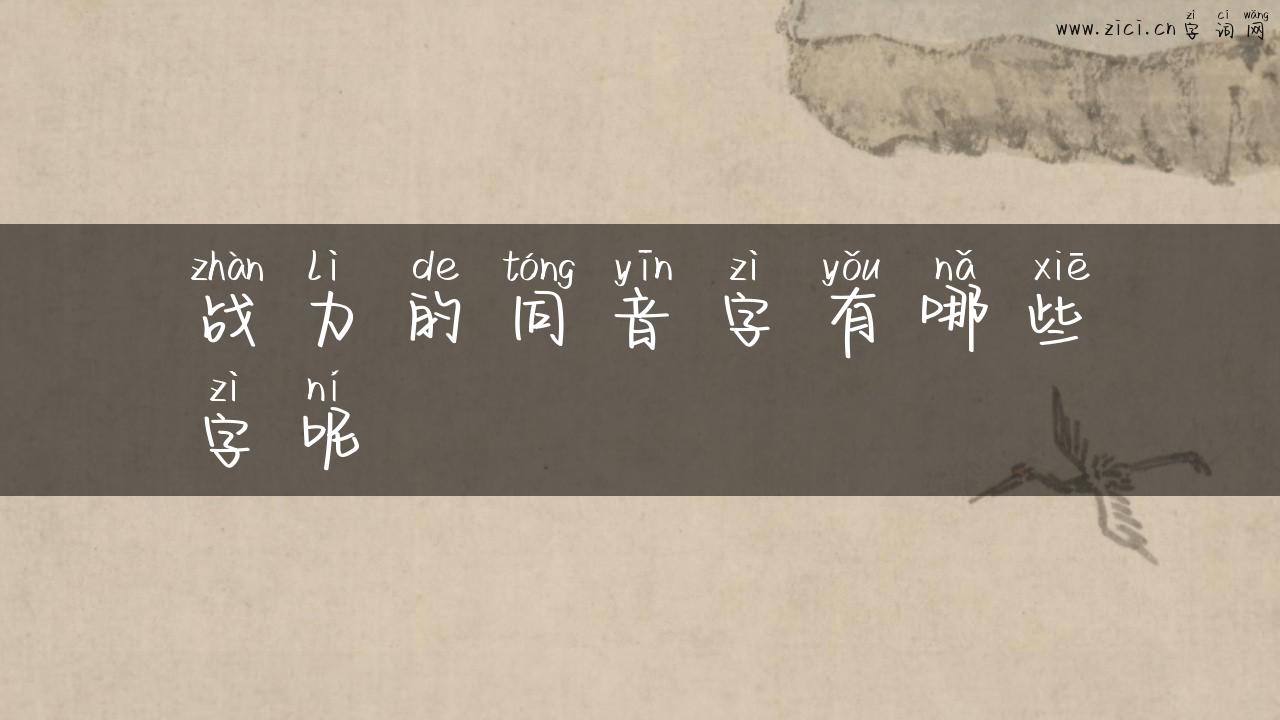 zì cí wǎng
www.zici.cn 字 词 网
zhàn lì de tóng yīn zì yǒu nǎ xiē
战 力 的 同 音 字 有 哪 些
zì ní
字 呢